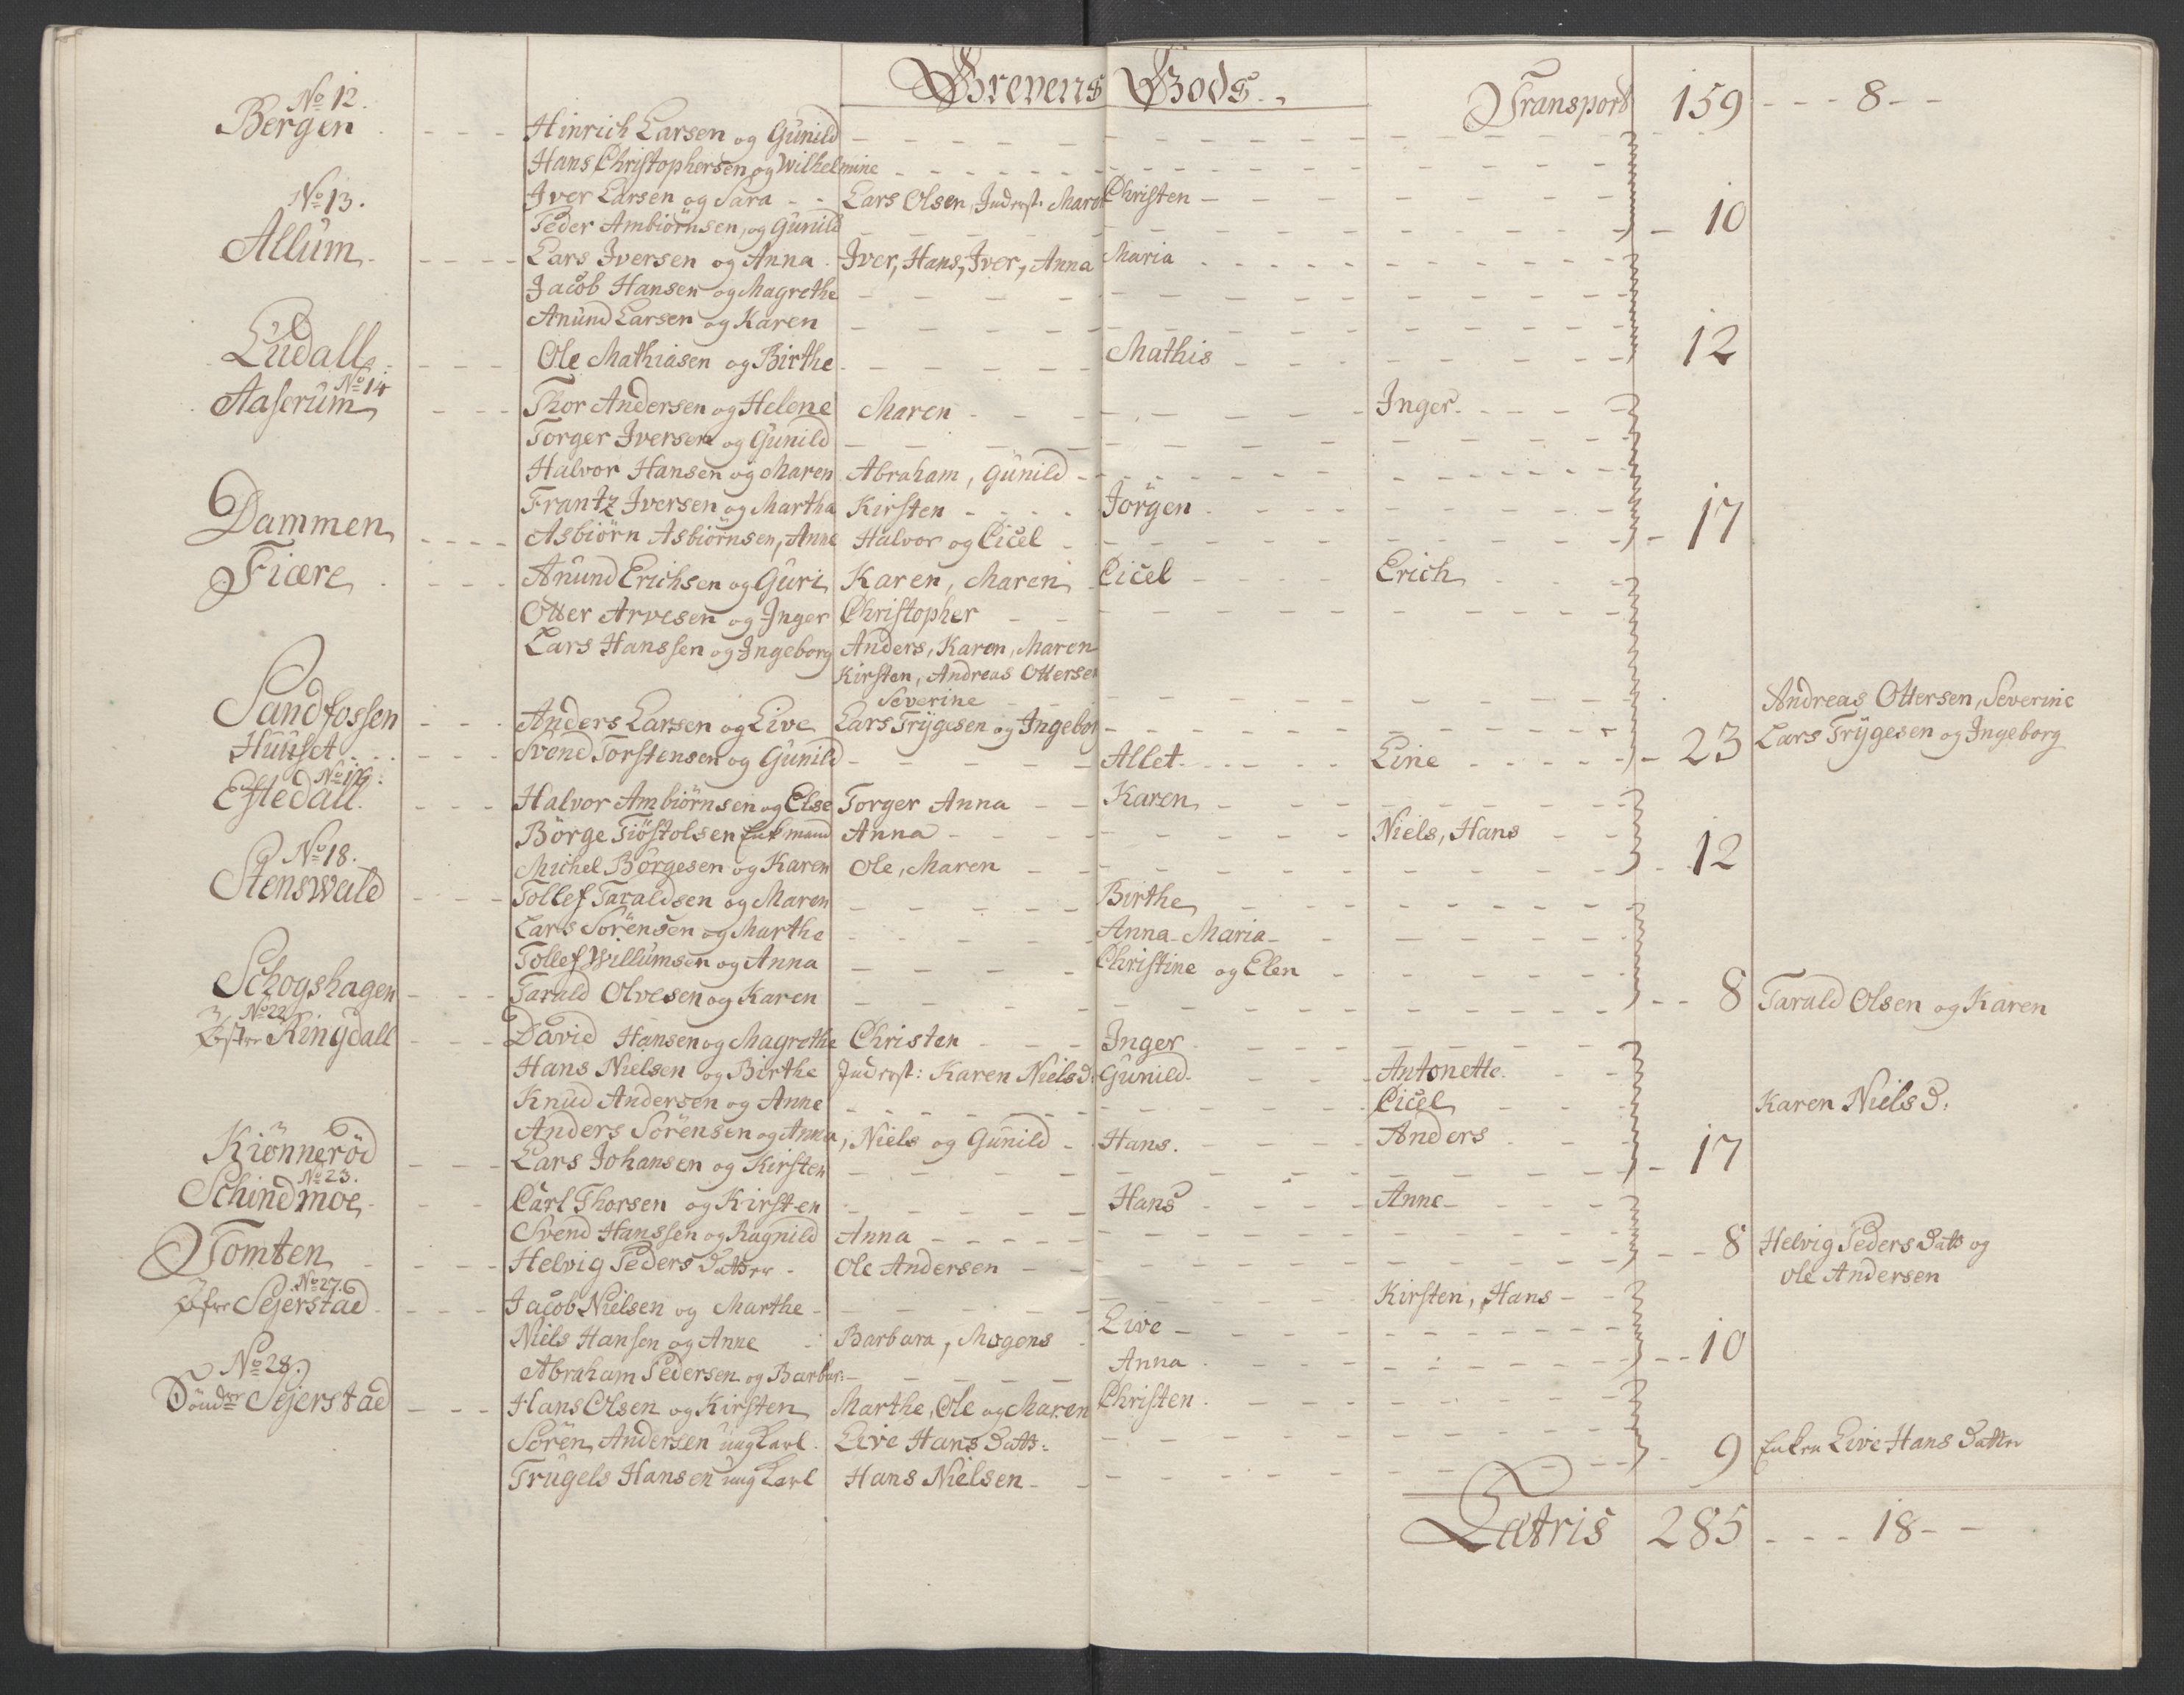 Grevens Gods Transport 159 - - - 8 - -
No 12.
Bergen - - - Hinrich Larsen og Gunild
Hans Christophersen og Wilhelmine
No 13. Iver Larsen og Sara - - Lars Olsen, Inderst. Christen
Peder Ambiörnsen, og Gunild 10
Allum - - - Lars Iversen og Anna Iver, Hans, Iver, Anna Maria
Jacob Hansen og Magrethe
Anund Larsen og Karen
Ludall - - - Ole Mathiasen og Birthe Mathis 12
No 14
Aaserum - - - Thor Andersen og Helene Maren Inger
Torger Iversen og Gunild
Halvor Hansen og Maren Abraham, Gunild
Frantz Iversen og Martha Kirsten Jörgen
Dammen - - - Asbiörn Asbiörnsen, Anne Halvor og Cicel 17
Fiære - - - Anund Erichsen og Guri Karen, Maren Cicel Erich
Otter Arvesen og Inger Christopher
Lars Hanssen og Ingeborg Anders, Karen, Maren
Kirsten, Andreas Ottersen
Severine Andreas Ottersen, Severine
Sandfossen - - - Anders Larsen og Live Lars Trygesen og Ingebor Lars Trygesen og Ingeborg
Huuset - - - Svend Torstensen og Gunild Allet Line 23
No 16.
Eftedall - - - Halvor Ambiörnsen og Else Torger Anna Karen
Börge Tiöstolsen Enkemand Anna Niels, Hans
No 18. Michel Börgesen og Karen Ole, Maren 12
Stenswald - - - Tollef Taraldsen og Maren Birthe
Lars Sörensen og Marthe Anna Maria
Tollef Willumsen og Anna Christine og Elen
Schogshagen - - - Tarald Olvesen og Karen 8 Tarald Olsen og Karen
No 22
Östre Ringdall - - - David Hansen og Magrethe Christen Inger
Hans Nielsen og Birthe Inderst: Karen Niels D: Gunild Antonette
Knud Andersen og Anne Cicel Karen Niels D:
Anders Sörensen og Anna, Niels og Gunild Hans. Anders
Kiönneröd - - - Lars Johansen og Kirsten 17
No 23.
Schindmoe - - Carl Thorsen og Kirsten Hans Anne
Svend Hanssen og Ragnild Anna 8 Helvig Peders Datt og
Tomten - - - Helvig Peders Datter - Ole Andersen Ole Andersen
No 27.
Öfre Sejerstad - - - Jacob Nielsen og Marthe Kirsten, Hans
Niels Hansen og Anne Barbara, Mogens Live 10
No 28. Abraham Pedersen og Barbar: Anna
Söndre Sejerstad - - - Hans Olsen og Kirsten Marthe, Ole og Maren Christen
Sören Andersen ung Karl Live Hans Datt: 9 Enken Live Hans Datter
Trugels Hansen ung Karl Hans Nielsen
Latris 285 - - - 18 - -